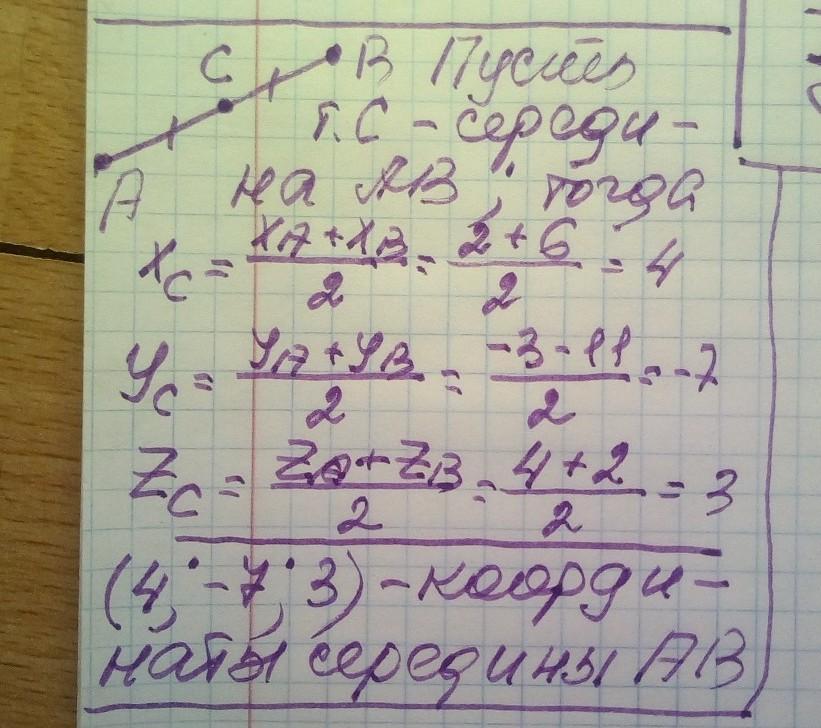 C B Пусть
т. C - середи-
A на AB, тогда
x_C = (x_A + x_B)/2 = (2 + 6)/2 = 4
y_C = (y_A + y_B)/2 = (-3 - 11)/2 = -7
z_C = (z_A + z_B)/2 = (4 + 2)/2 = 3
(4; -7; 3) - коорди-
наты середины AB